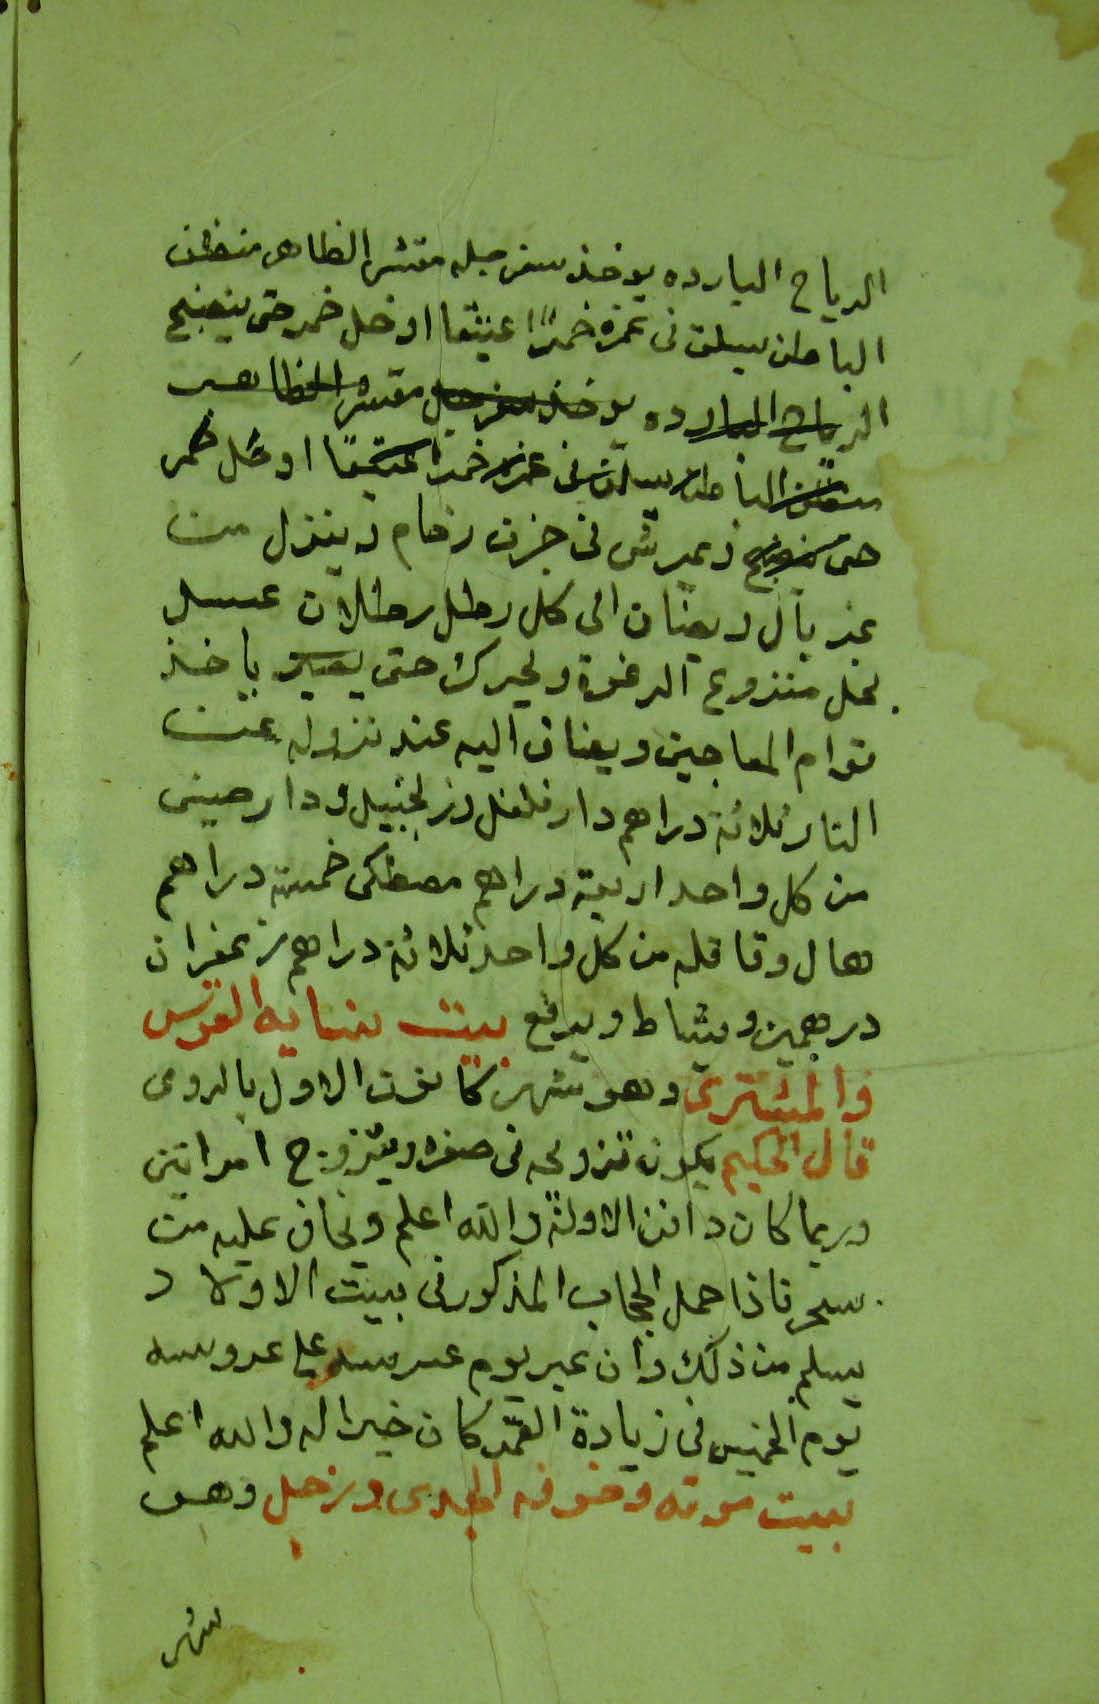 الرياح الباردة يوخذ سفرجله مقشر الظاهر منظف
الباطن يسلق في غمره خمرًا عتيقا او خل خمر حتى ينضج
الرياح الباردة يوخذ سفرجل مقشر الظاهر
منظف الباطن يسلق في غمره خمرا عتيقًا او خل خمر
حتى ينضج ويمرش في جرن رخام وينزل من
غربال ويضاف الى كل رطل رطلان عسل
نحل منزوع الرغوة ويحرك حتى يصير ياخذ
قوام المعاجين ويضاف اليه عند نزوله عن
النار ثلاثة دراهم دارفلفل وزنجبيل ودارصيني
من كل واحد اربعة دراهم مصطكى خمسة دراهم
هال وقاقله من كل واحد ثلاثة دراهم زعفران
درهمين ويشاط ويرفع بيت نسايه القوس
والمشترى وهو شهر كانون الاول بالرومى
قال الحكيم يكون تزويجه في صغره ويتزوج امراتين
وربما كان دافن الاولة والله اعلم ويخاف عليه من
سحر فاذا حمل الحجاب المذكور في بيت الاولاد
يسلم من ذلك وان عبر يوم عرسه على عروسه
يوم الخميس في زيادة القمر كان خيرا له والله اعلم
بيت موته وخوفه الجدى وزحل وهو
شهر